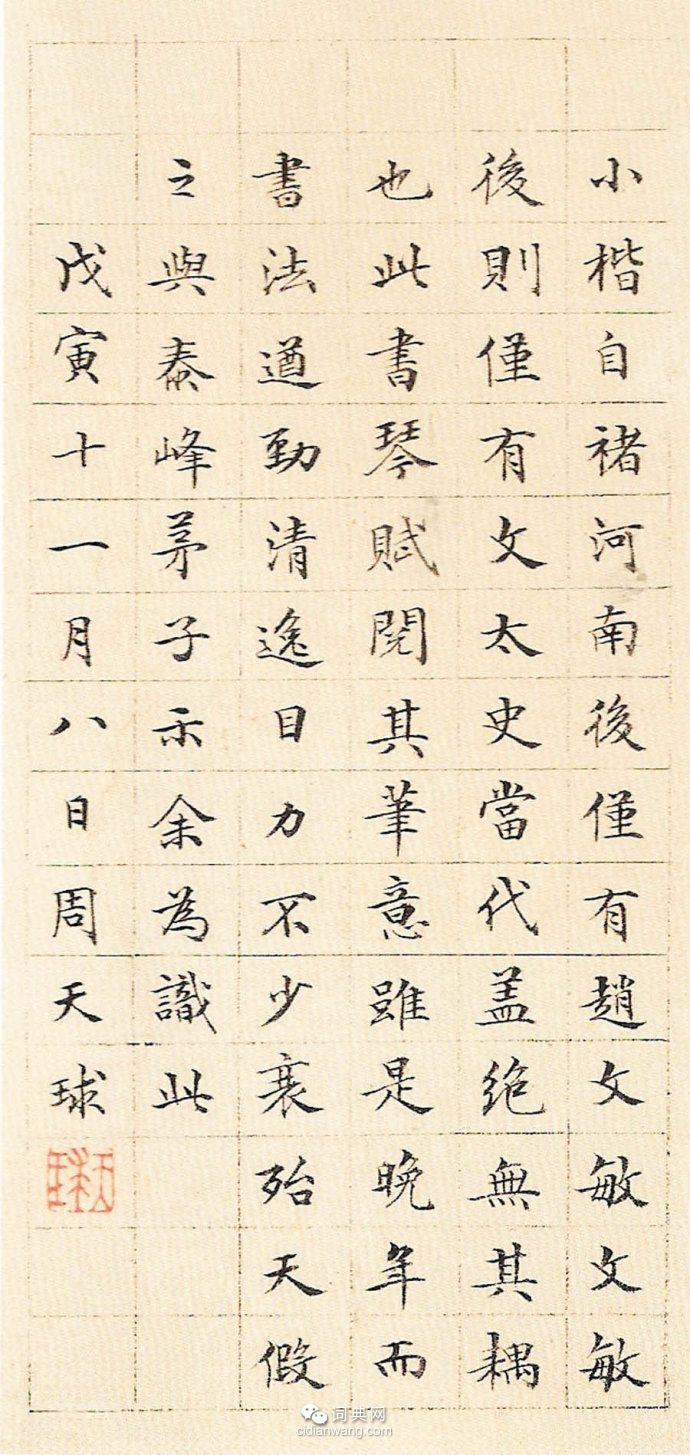 小楷自褚河南後僅有趙文敏文敏
後則僅有文太史當代蓋絶無其耦
也此書琴賦閱其筆意雖是晚年而
書法遒勁清逸目力不少衰殆天假
之與泰峰茅子示余為識此
戊寅十一月八日周天球
词典网
cidianwang.com